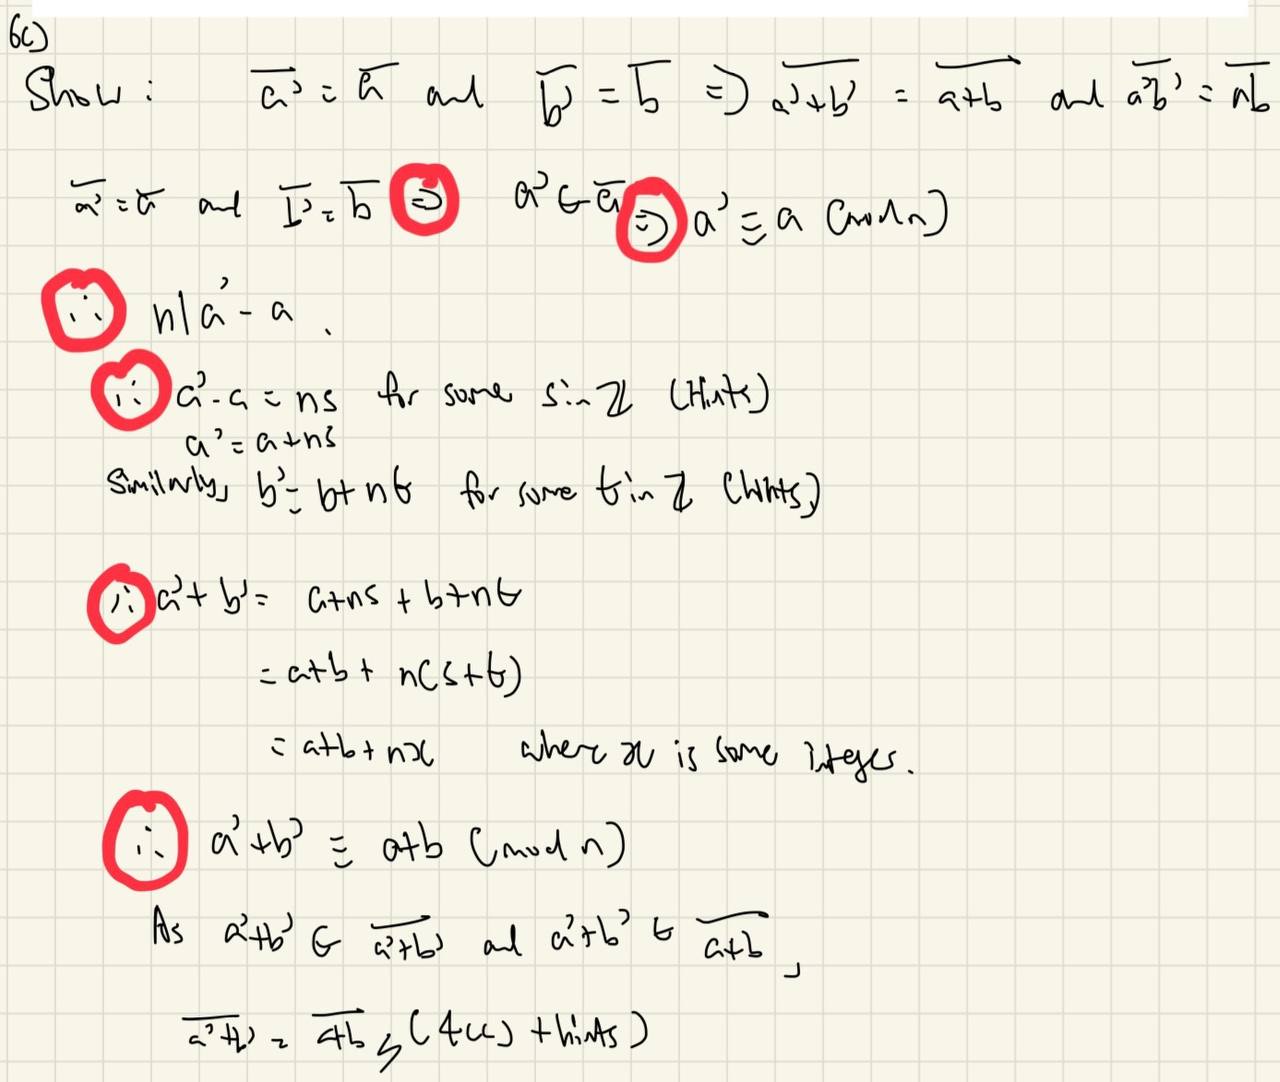 6c)
Show: a̅'̅ = a̅ and b̅'̅ = b̅ ⇒ a̅'̅+̅b̅'̅ = a̅+̅b̅ and a̅'̅b̅'̅ = a̅b̅
a̅'̅ = a̅ and b̅'̅ = b̅ ⇒ a' ∈ a̅ ⇒ a' ≡ a (mod n)
∴ n|a' - a .
∴ a' - a = ns for some s in ℤ (Hints)
a' = a + ns
Similarly, b' = b + nt for some t in ℤ (hints)
∴ a' + b' = a+ns + b+nt
= a+b + n(s+t)
= a+b+nx where x is some integer.
∴ a'+b' ≡ a+b (mod n)
As a'+b' ∈ a̅'̅+̅b̅'̅ and a'+b' ∈ a̅+̅b̅,
a̅'̅+̅b̅'̅ = a̅+̅b̅, (4(c) + hints)